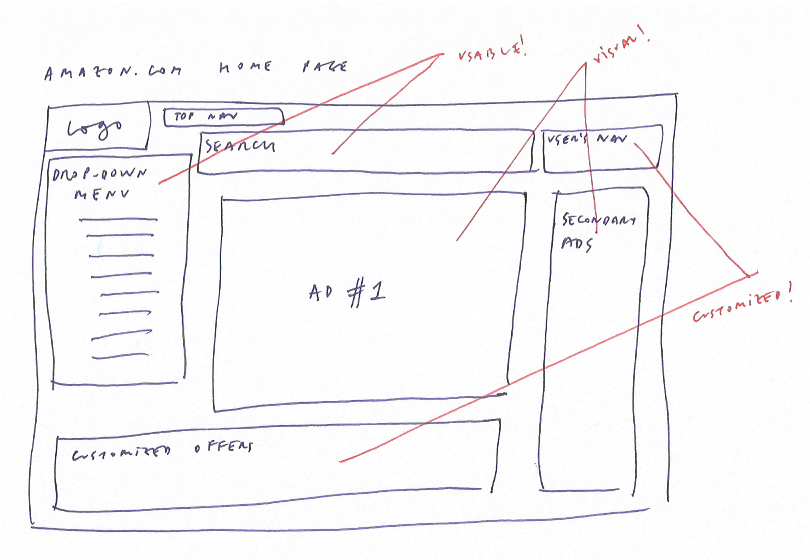 AMAZON.COM HOME PAGE
USABLE!
VISUAL!
Logo
TOP NAV
SEARCH
USER'S NAV
DROP-DOWN
MENU
SECONDARY
ADS
AD #1
CUSTOMIZED!
CUSTOMIZED OFFERS